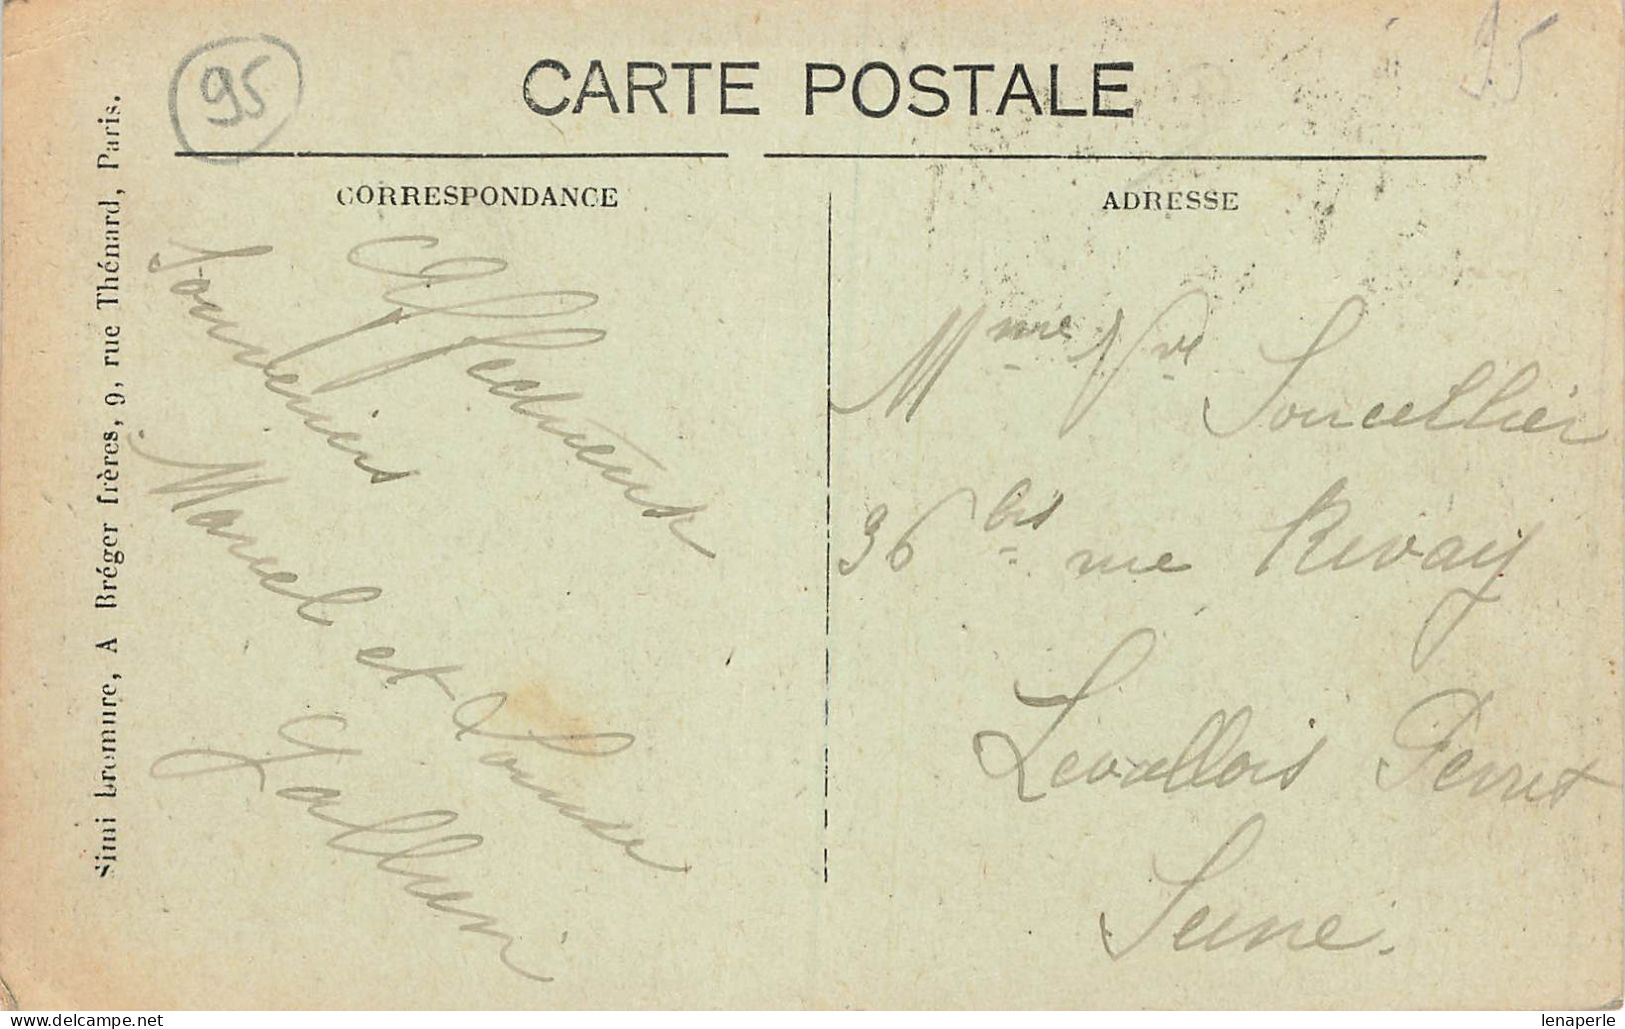 95
95
CARTE POSTALE
CORRESPONDANCE
ADRESSE
Simi bromure, A Bréger frères, 9, rue Thénard, Paris.
Affectueux
Souvenirs
Marcel et Louise
Gallieni
Mme Vve Soucellier
36 bis rue Rivay
Levallois Perret
Seine.
lenaperle